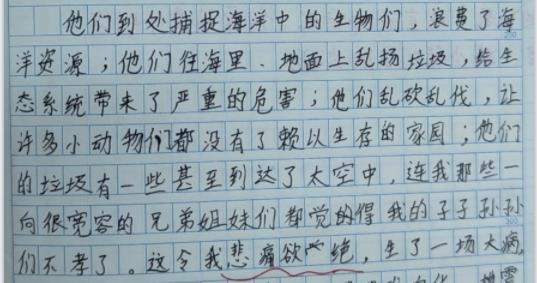 他们到处捕捉海洋中的生物们，浪费了海
洋资源；他们往海里、地面上乱扬垃圾，给生
态系统带来了严重的危害；他们乱砍乱伐，让
许多小动物们都没有了赖以生存的家园；他们
的垃圾有一些甚至到达了太空中，连我那些一
向很宽容的兄弟姐妹们都觉的得我的子子孙孙
们不孝了。这令我悲痛欲绝，生了一场大病，